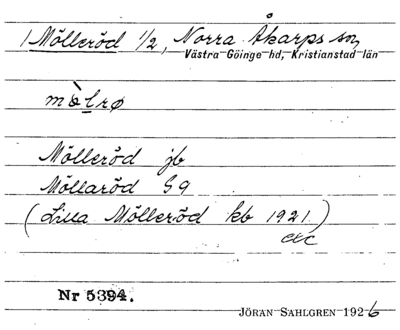 1 Mölleröd 1/2, Norra Åkarps sn,
Västra Göinge hd, Kristianstad län
Mölleröd jb
Möllaröd G9
(Lilla Mölleröd kb 1921.)
etc
Nr 5394.
JÖRAN SAHLGREN 1926